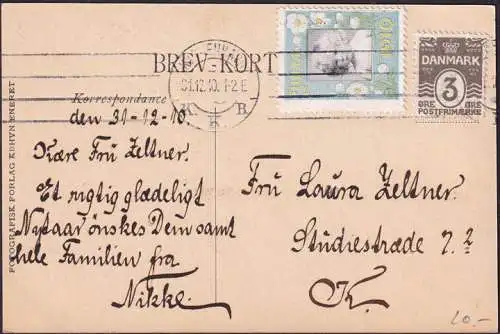 BREV-KORT
31.12.10. 1-2 E
K B
Korrespondance
den 31-12-10.
Kære Frü Zeltner.
Et rigtig glædeligt
Nytaar ønskes Dem samt
hele Familien fra
Nikke.
FOTOGRAFISK FORLAG KBHVN ENERET
1910
DANMARK
3
ØRE ØRE
POSTFRIMÆRKE
Frü Laura Zeltner.
Studiestræde 7.2
K.
20.-